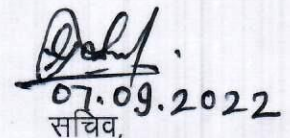 07.09.2022
सचिव,